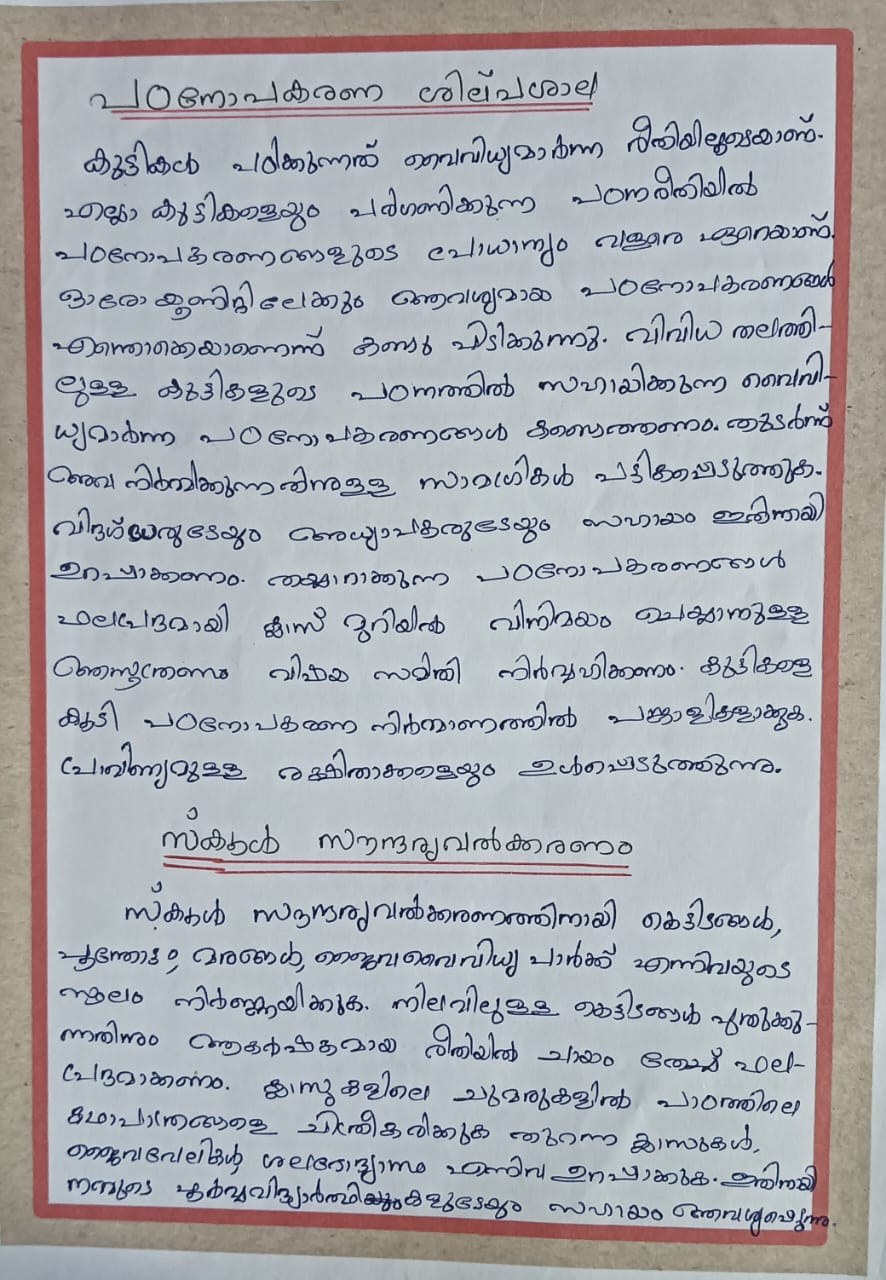 പഠനോപകരണ ശില്പശാല
കുട്ടികൾ പഠിക്കുന്നത് വൈവിധ്യമാർന്ന രീതിയിലൂടെയാണ്.
എല്ലാ കുട്ടികളെയും പരിഗണിക്കുന്ന പഠനരീതിയിൽ
പഠനോപകരണങ്ങളുടെ പ്രാധാന്യം വളരെ ഏറെയാണ്.
ഓരോ യൂണിറ്റിലേക്കും ആവശ്യമായ പഠനോപകരണങ്ങൾ
എന്തൊക്കെയാണെന്ന് കണ്ടു പിടിക്കുന്നു. വിവിധ തലത്തി-
ലുള്ള കുട്ടികളുടെ പഠനത്തിൽ സഹായിക്കുന്ന വൈവി-
ധ്യമാർന്ന പഠനോപകരണങ്ങൾ കണ്ടെത്തണം. തുടർന്ന്
അവ നിർമ്മിക്കുന്നതിനുള്ള സാമഗ്രികൾ പട്ടികപ്പെടുത്തുക.
വിദഗ്ധരുടേയും അധ്യാപകരുടേയും സഹായം ഇതിനായി
ഉറപ്പാക്കണം. തയ്യാറാക്കുന്ന പഠനോപകരണങ്ങൾ
ഫലപ്രദമായി ക്ലാസ് മുറിയിൽ വിനിമയം ചെയ്യാനുള്ള
ആസൂത്രണം വിഷയ സമിതി നിർവ്വഹിക്കണം. കുട്ടികളെ
കൂടി പഠനോപകരണ നിർമ്മാണത്തിൽ പങ്കാളികളാക്കുക.
പ്രാവീണ്യമുള്ള രക്ഷിതാക്കളെയും ഉൾപ്പെടുത്തുന്നു.
സ്കൂൾ സൗന്ദര്യവൽക്കരണം
സ്കൂൾ സൗന്ദര്യവൽക്കരണത്തിനായി കെട്ടിടങ്ങൾ,
പൂന്തോട്ടം, മരങ്ങൾ, ജൈവവൈവിധ്യ പാർക്ക് എന്നിവയുടെ
സ്ഥലം നിർണ്ണയിക്കുക. നിലവിലുള്ള കെട്ടിടങ്ങൾ പുതുക്കു-
ന്നതിനും ആകർഷകമായ രീതിയിൽ ചായം തേച്ച് ഫല-
പ്രദമാക്കണം. ക്ലാസുകളിലെ ചുമരുകളിൽ പാഠത്തിലെ
കഥാപാത്രങ്ങളെ ചിത്രീകരിക്കുക തുറന്ന ക്ലാസുകൾ,
ജൈവവേലികൾ, ശലഭോദ്യാനം എന്നിവ ഉറപ്പാക്കുക. ഇതിനായി
നമ്മുടെ പൂർവ്വവിദ്യാർത്ഥികളുടേയും സഹായം ആവശ്യപ്പെടുന്നു.